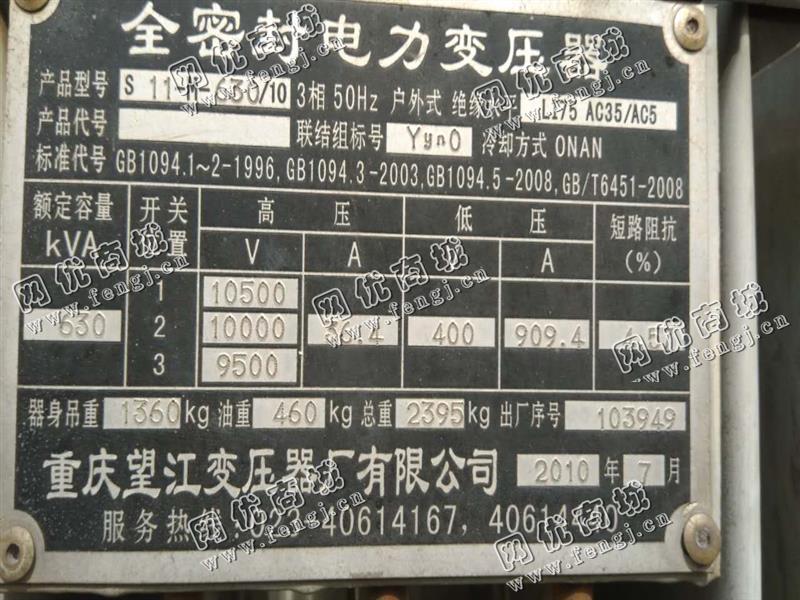 全密封电力变压器
产品型号 S 11-M-630/10 3相 50Hz 户外式 绝缘水平 LI75 AC35/AC5
产品代号 联结组标号 Yyn0 冷却方式 ONAN
标准代号 GB1094.1~2-1996,GB1094.3-2003,GB1094.5-2008,GB/T6451-2008
额定容量 kVA 开关位置 高压 低压 短路阻抗 (%)
V A V A
1 10500
630 2 10000 36.4 400 909.4 4.5
3 9500
器身吊重 1360 kg 油重 460 kg 总重 2395 kg 出厂序号 103949
重庆望江变压器厂有限公司 2010 年 7 月
服务热线:023-40614167,
网优商城
www.fengj.cn
网优商城
www.fengj.cn
网优商城
www.fengj.cn
网优商城
www.fengj.cn
网优商城
www.fengj.cn
网优商城
www.fengj.cn
网优商城
www.fengj.cn
网优商城
www.fengj.cn